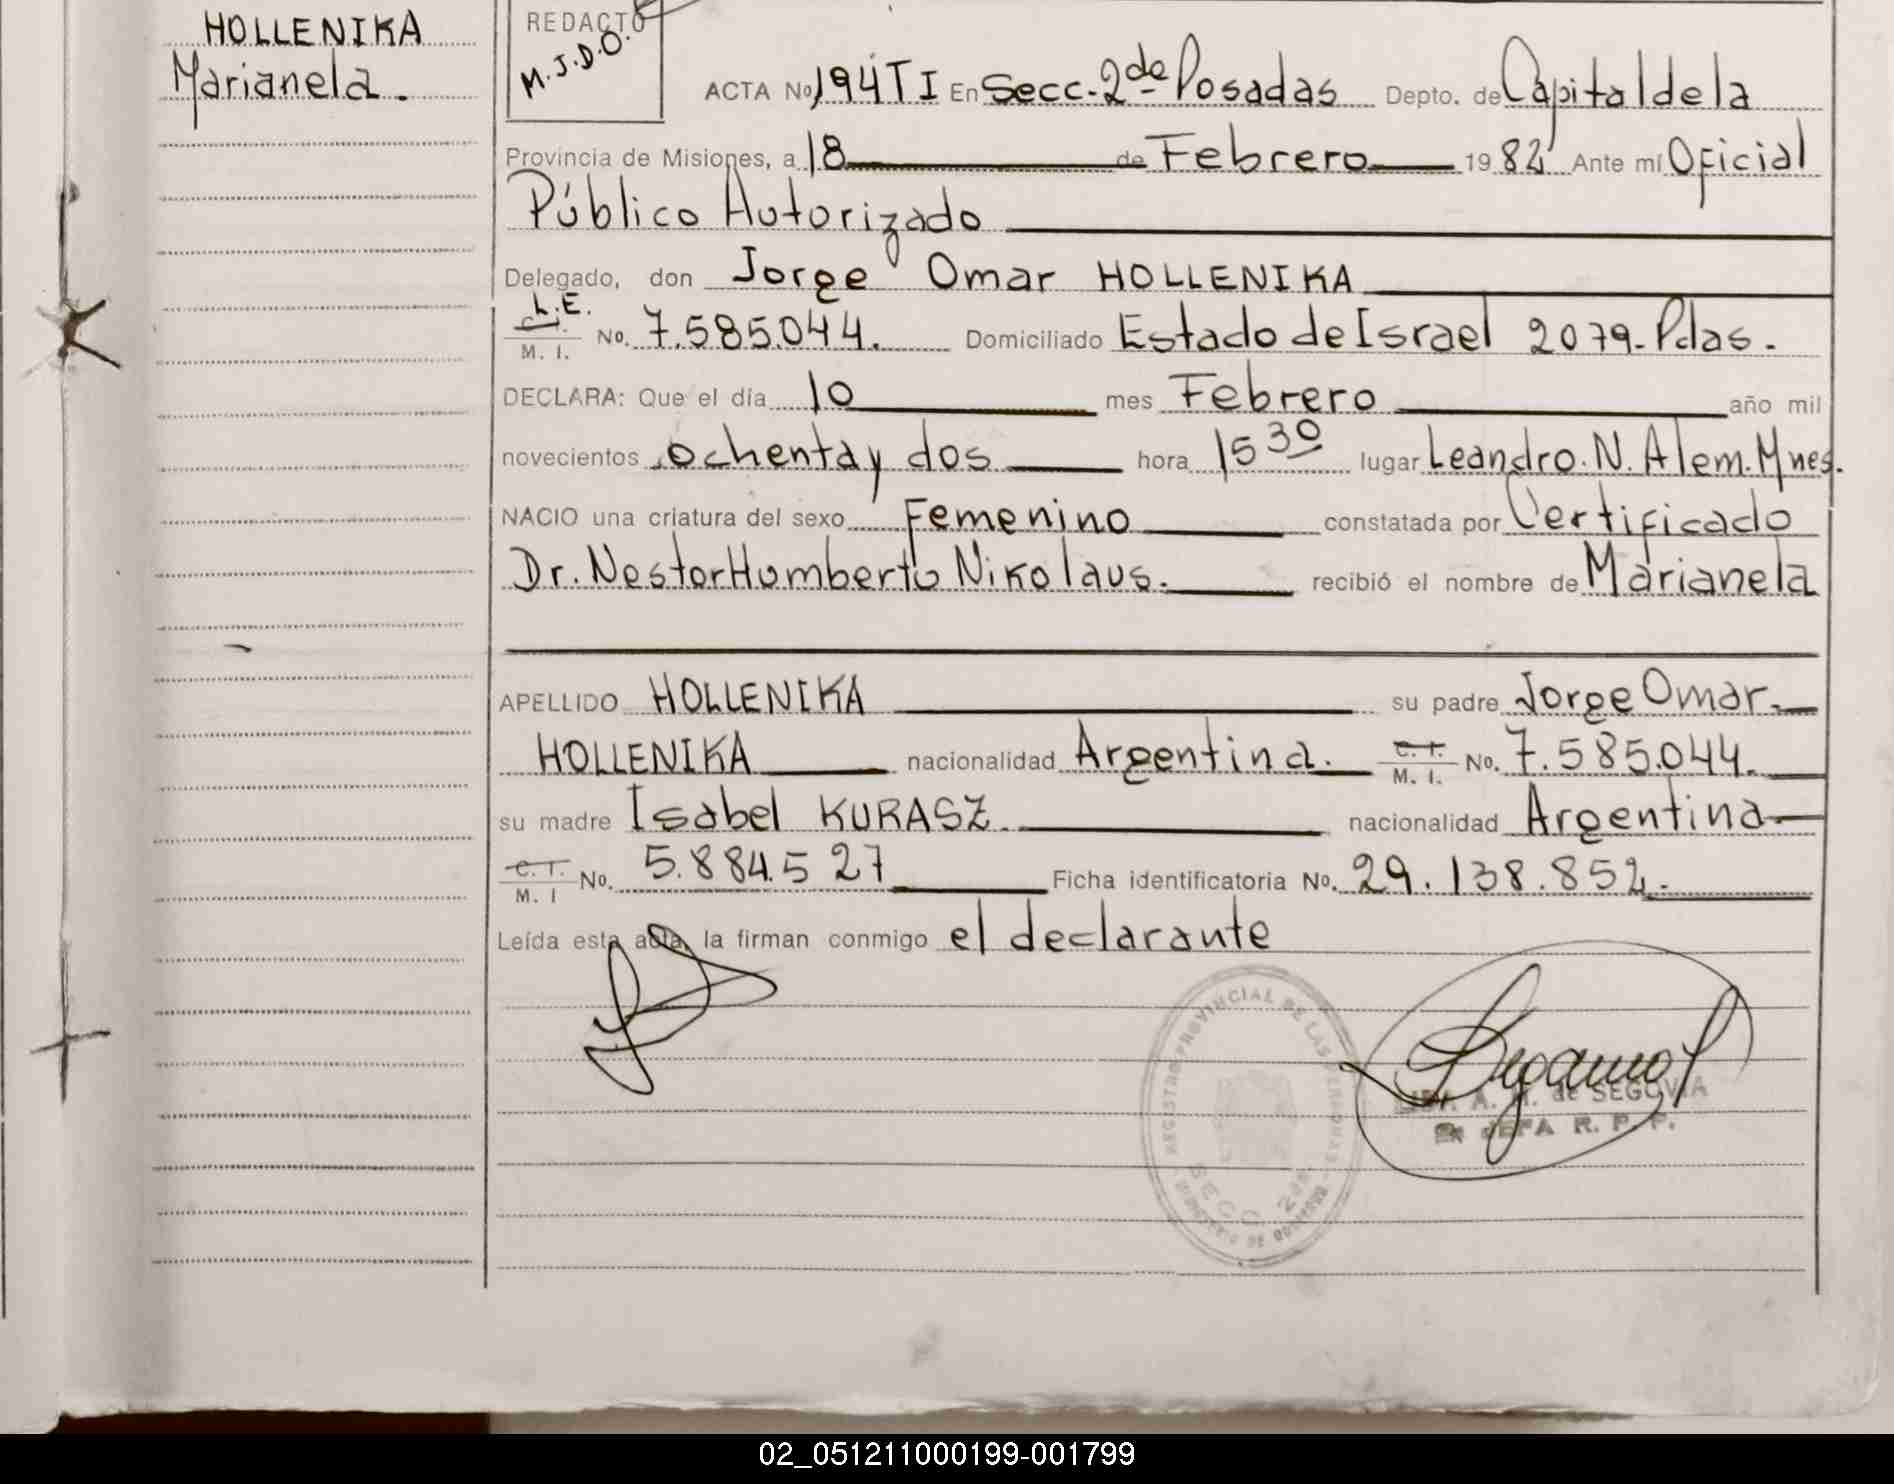 HOLLENIKA
Marianela.
REDACTO
M.J.D.O.
ACTA No 194 TI En Secc. 2da Posadas Depto. de Capital de la
Provincia de Misiones, a 18 de Febrero 1982 Ante mí Oficial
Público Autorizado
Delegado, don Jorge Omar HOLLENIKA
L.E.
M. I. No. 7.585.044. Domiciliado Estado de Israel 2079-Pdas.
DECLARA: Que el día 10 mes Febrero año mil
novecientos ochenta y dos hora 15 30 lugar Leandro. N. Alem. Mnes.
NACIO una criatura del sexo Femenino constatada por Certificado
Dr. Nestor Humberto Nikolaus. recibió el nombre de Marianela
APELLIDO HOLLENIKA su padre Jorge Omar.
HOLLENIKA nacionalidad Argentina. C.I. M. I. No. 7.585.044.
su madre Isabel KURASZ. nacionalidad Argentina
C. I. M. I No. 5.884.527 Ficha identificatoria No. 29.138.852.
Leída esta acta, la firman conmigo el declarante
REGISTRO PROVINCIAL DE LAS PERSONAS
SECC. 2da
MINISTERIO DE GOBIERNO
A. M. de SEGOVIA
JEFA R. P. P.
02_051211000199-001799